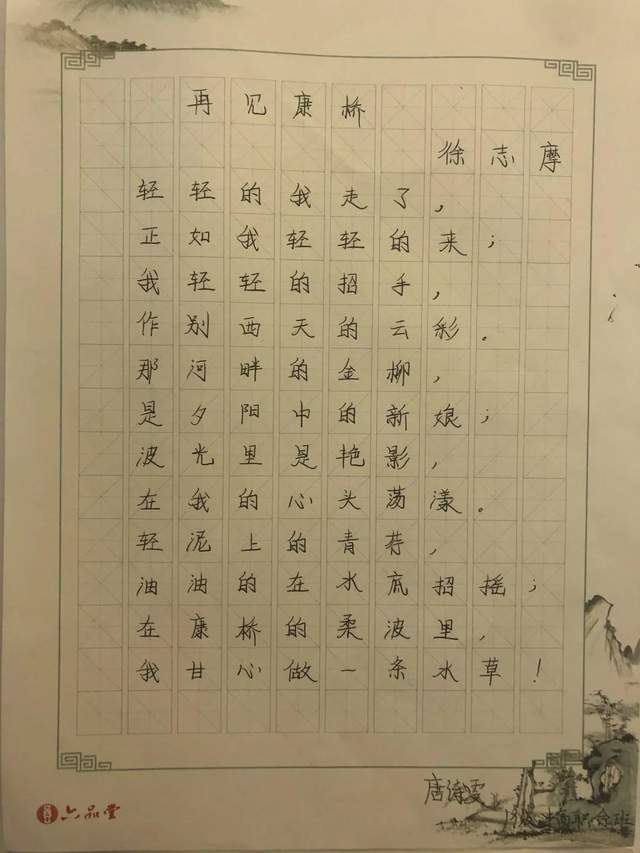 再见康桥
徐志摩
轻轻的我走了，
正如我轻轻的来；
我轻轻的招手，
作别西天的云彩。
那河畔的金柳，
是夕阳中的新娘；
波光里是艳影，
在我的心头荡漾。
轻泥上的青荇，
油油的在水底招摇；
在康桥的柔波里，
我甘心做一条水草！
六品堂